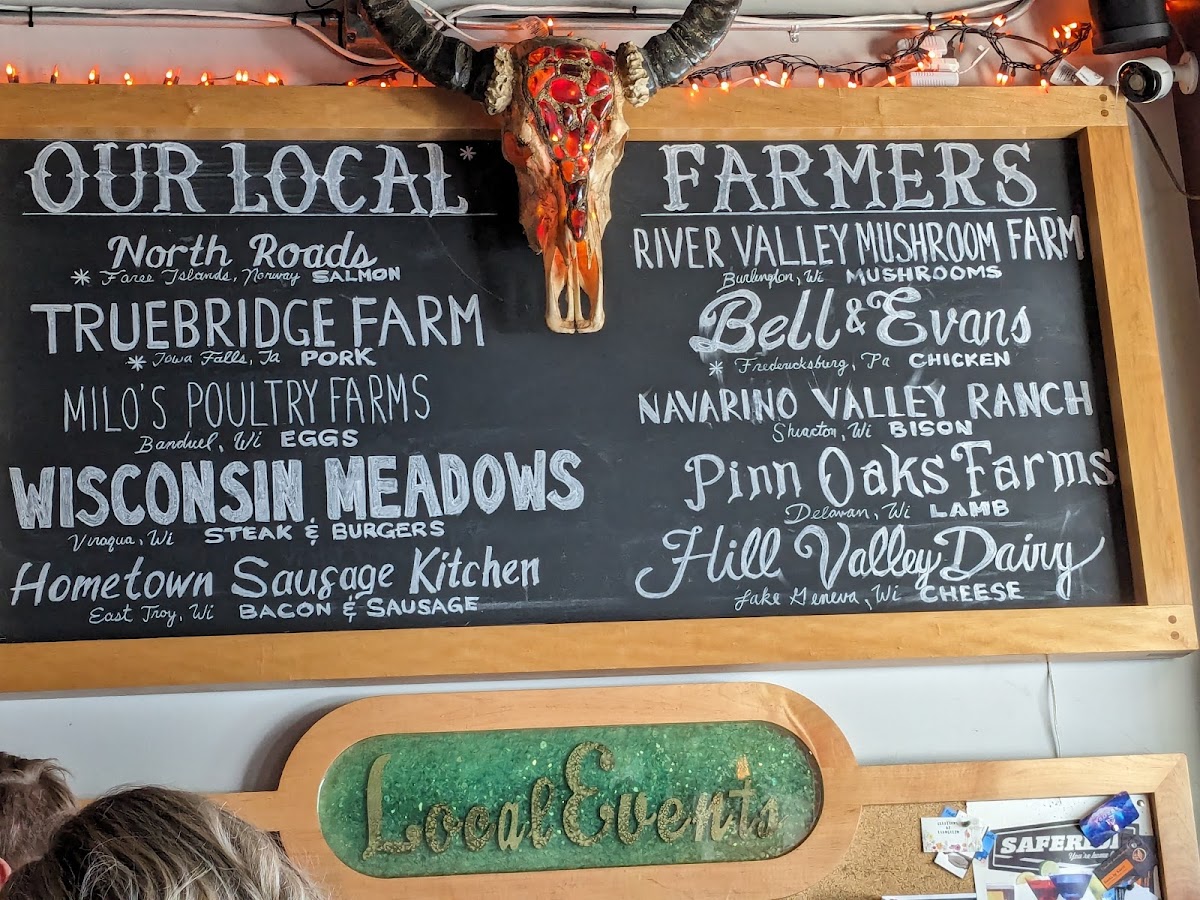 OUR LOCAL *
North Roads
* Faroe Islands, Norway SALMON
TRUEBRIDGE FARM
* Iowa Falls, Ia PORK
MILO'S POULTRY FARMS
Banduel, Wi EGGS
WISCONSIN MEADOWS
Viraqua, Wi STEAK & BURGERS
Hometown Sausage Kitchen
East Troy, Wi BACON & SAUSAGE
FARMERS
RIVER VALLEY MUSHROOM FARM
Burlington, Wi MUSHROOMS
Bell & Evans
* Fredericksburg, Pa CHICKEN
NAVARINO VALLEY RANCH
Shiocton, Wi BISON
Pinn Oaks Farms
Delavan, Wi LAMB
Hill Valley Dairy
Lake Geneva, Wi CHEESE
Local Events